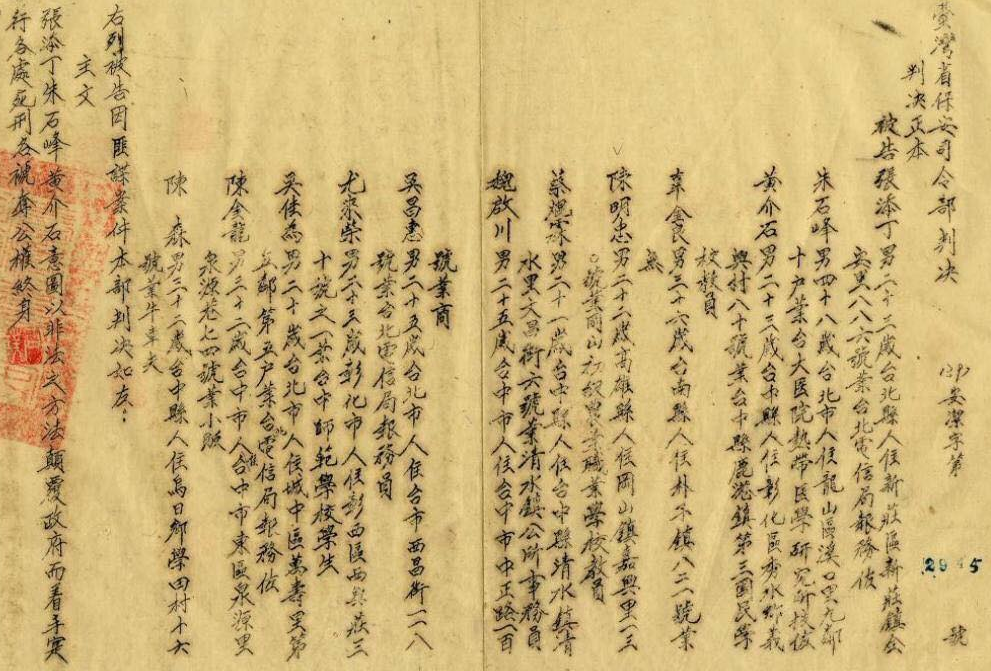 臺灣省保安司令部判決
(39)安潔字第2945號
判決正本
被告張添丁男二十三歲台北縣人住新莊區新莊鎮公
安里八八六號業台北電信局報務佐
朱石峰男四十八歲台北市人住龍山區溪口里九鄰
十戶業台大医院熱帶医學研究所技佐
黃介石男二十三歲台中縣人住彰化區秀水鄉義
興村八十號業台中縣鹿港鎮第三國民學
校教員
辜金良男三十六歲台南縣人住朴子鎮八二一號業
無
陳明忠男二十二歲高雄縣人住岡山鎮嘉興里一三
〇號業岡山初級農業職業學校教員
蔡焜霖男二十一歲台中縣人住台中縣清水鎮清
水里文昌街六號業清水鎮公所事務員
魏啟川男二十五歲台中市人住台中市中正路一百
號業商
吳昌惠男二十五歲台北市人住台市西昌街一一八
號業台北電信局報務員
尤崇榮男二十三歲彰化市人住彰西區西興莊三
十號之一業台中師範學校學生
吳佳為男二十歲台北市人住城中區萬壽里第
五鄰第五戶業台北電信局報務佐
陳金龍男三十二歲台中市人住台中市東區泉源里
泉源巷七四號業小販
陳 森男三十二歲台中縣人住烏日鄉學田村十六
號業牛車夫
右列被告因匪諜案件本部判決如左：
主文
張添丁朱石峰黃介石意圖以非法之方法顛覆政府而着手實
行各處死刑各褫奪公權終身